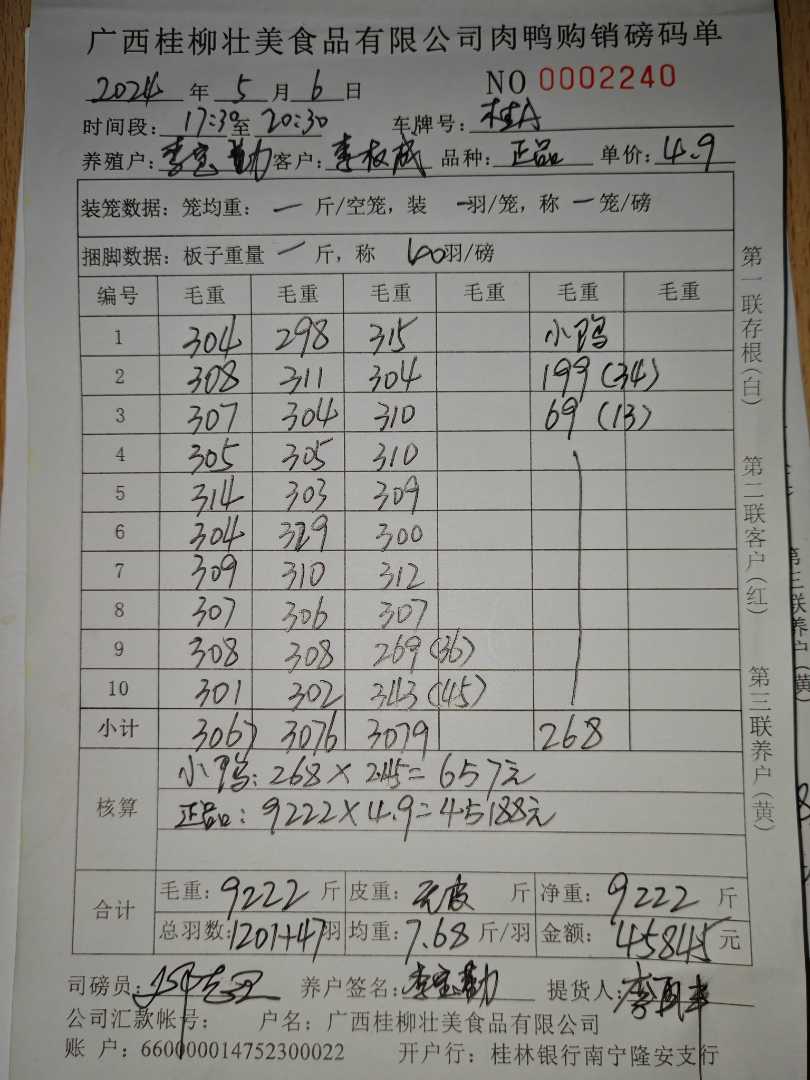 广西桂柳壮美食品有限公司肉鸭购销磅码单
2024 年 5 月 6 日 NO 0002240
时间段: 17:30 至 20:30 车牌号: 桂A
养殖户: 李宝勤 客户: 李权成 品种: 正品 单价: 4.9
装笼数据: 笼均重: 一 斤/空笼, 装 一羽/笼, 称 一笼/磅
捆脚数据: 板子重量 一 斤, 称 羽/磅
编号 毛重 毛重 毛重 毛重 毛重 毛重
1 304 298 315 小鸭
2 308 311 304 199 (34)
3 307 304 310 69 (13)
4 305 305 310
5 314 303 309
6 304 329 300
7 309 310 312
8 307 306 307
9 308 308 269 (36)
10 301 302 343 (45)
小计 3067 3076 3079 268
核算 小鸭: 268 × 2.45 = 657元
正品: 9222 × 4.9 = 45188元
合计 毛重: 9222 斤 皮重: 无皮 斤 净重: 9222 斤
总羽数: 1201+47羽 均重: 7.68 斤/羽 金额: 45845 元
司磅员: 养户签名: 李宝勤 提货人:
公司汇款帐号: 户名: 广西桂柳壮美食品有限公司
账 户: 660000014752300022 开户行: 桂林银行南宁隆安支行
第一联存根(白) 第二联客户(红) 第三联养户(黄)